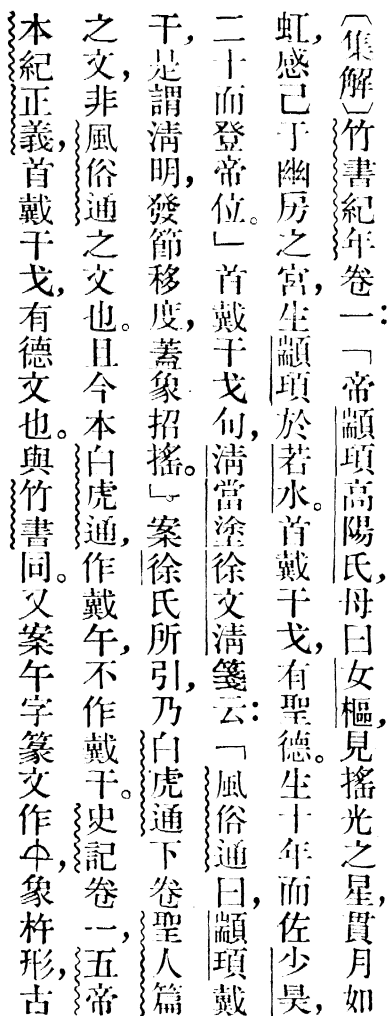 〔集解〕竹書紀年卷一：「帝顓頊高陽氏，母曰女樞，見搖光之星，貫月如
虹，感己于幽房之宮，生顓頊於若水。首戴干戈，有聖德。生十年而佐少昊，
二十而登帝位。」首戴干戈句，清當塗徐文淸箋云：「風俗通曰，顓頊戴
干，是謂淸明，發節移度，蓋象招搖。」案徐氏所引，乃白虎通下卷聖人篇
之文，非風俗通之文也。且今本白虎通，作戴午，不作戴干。史記卷一，五帝
本紀正義，首戴干戈，有德文也。與竹書同。又案午字篆文作，象杵形，古